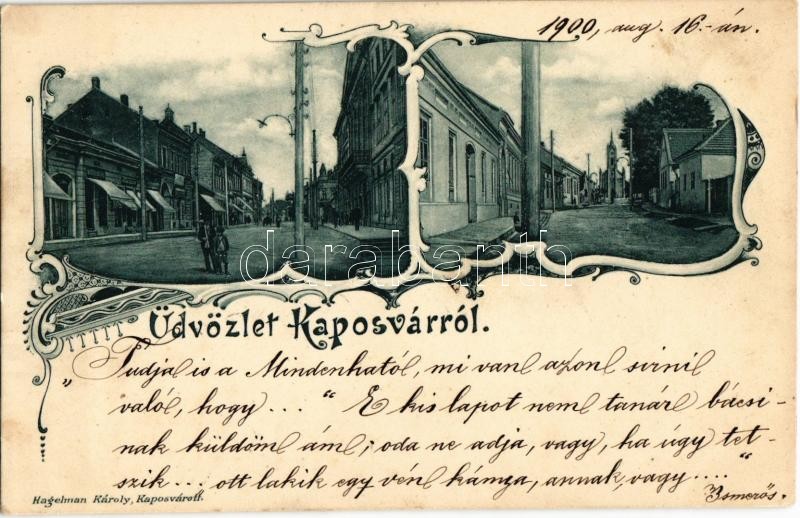 1900, aug. 16.-án.
darabanth
Üdvözlet Kaposvárról.
„Tudja is a Mindenható, mi van azon sirni
való, hogy ... “ E kis lapot nem tanár bácsi-
nak küldöm ám; oda ne adja, vagy, ha úgy tet-
szik ... ott lakik egy vén kámzsa, annak vagy ....“
Ismerős.
Hagelman Károly, Kaposvárott.